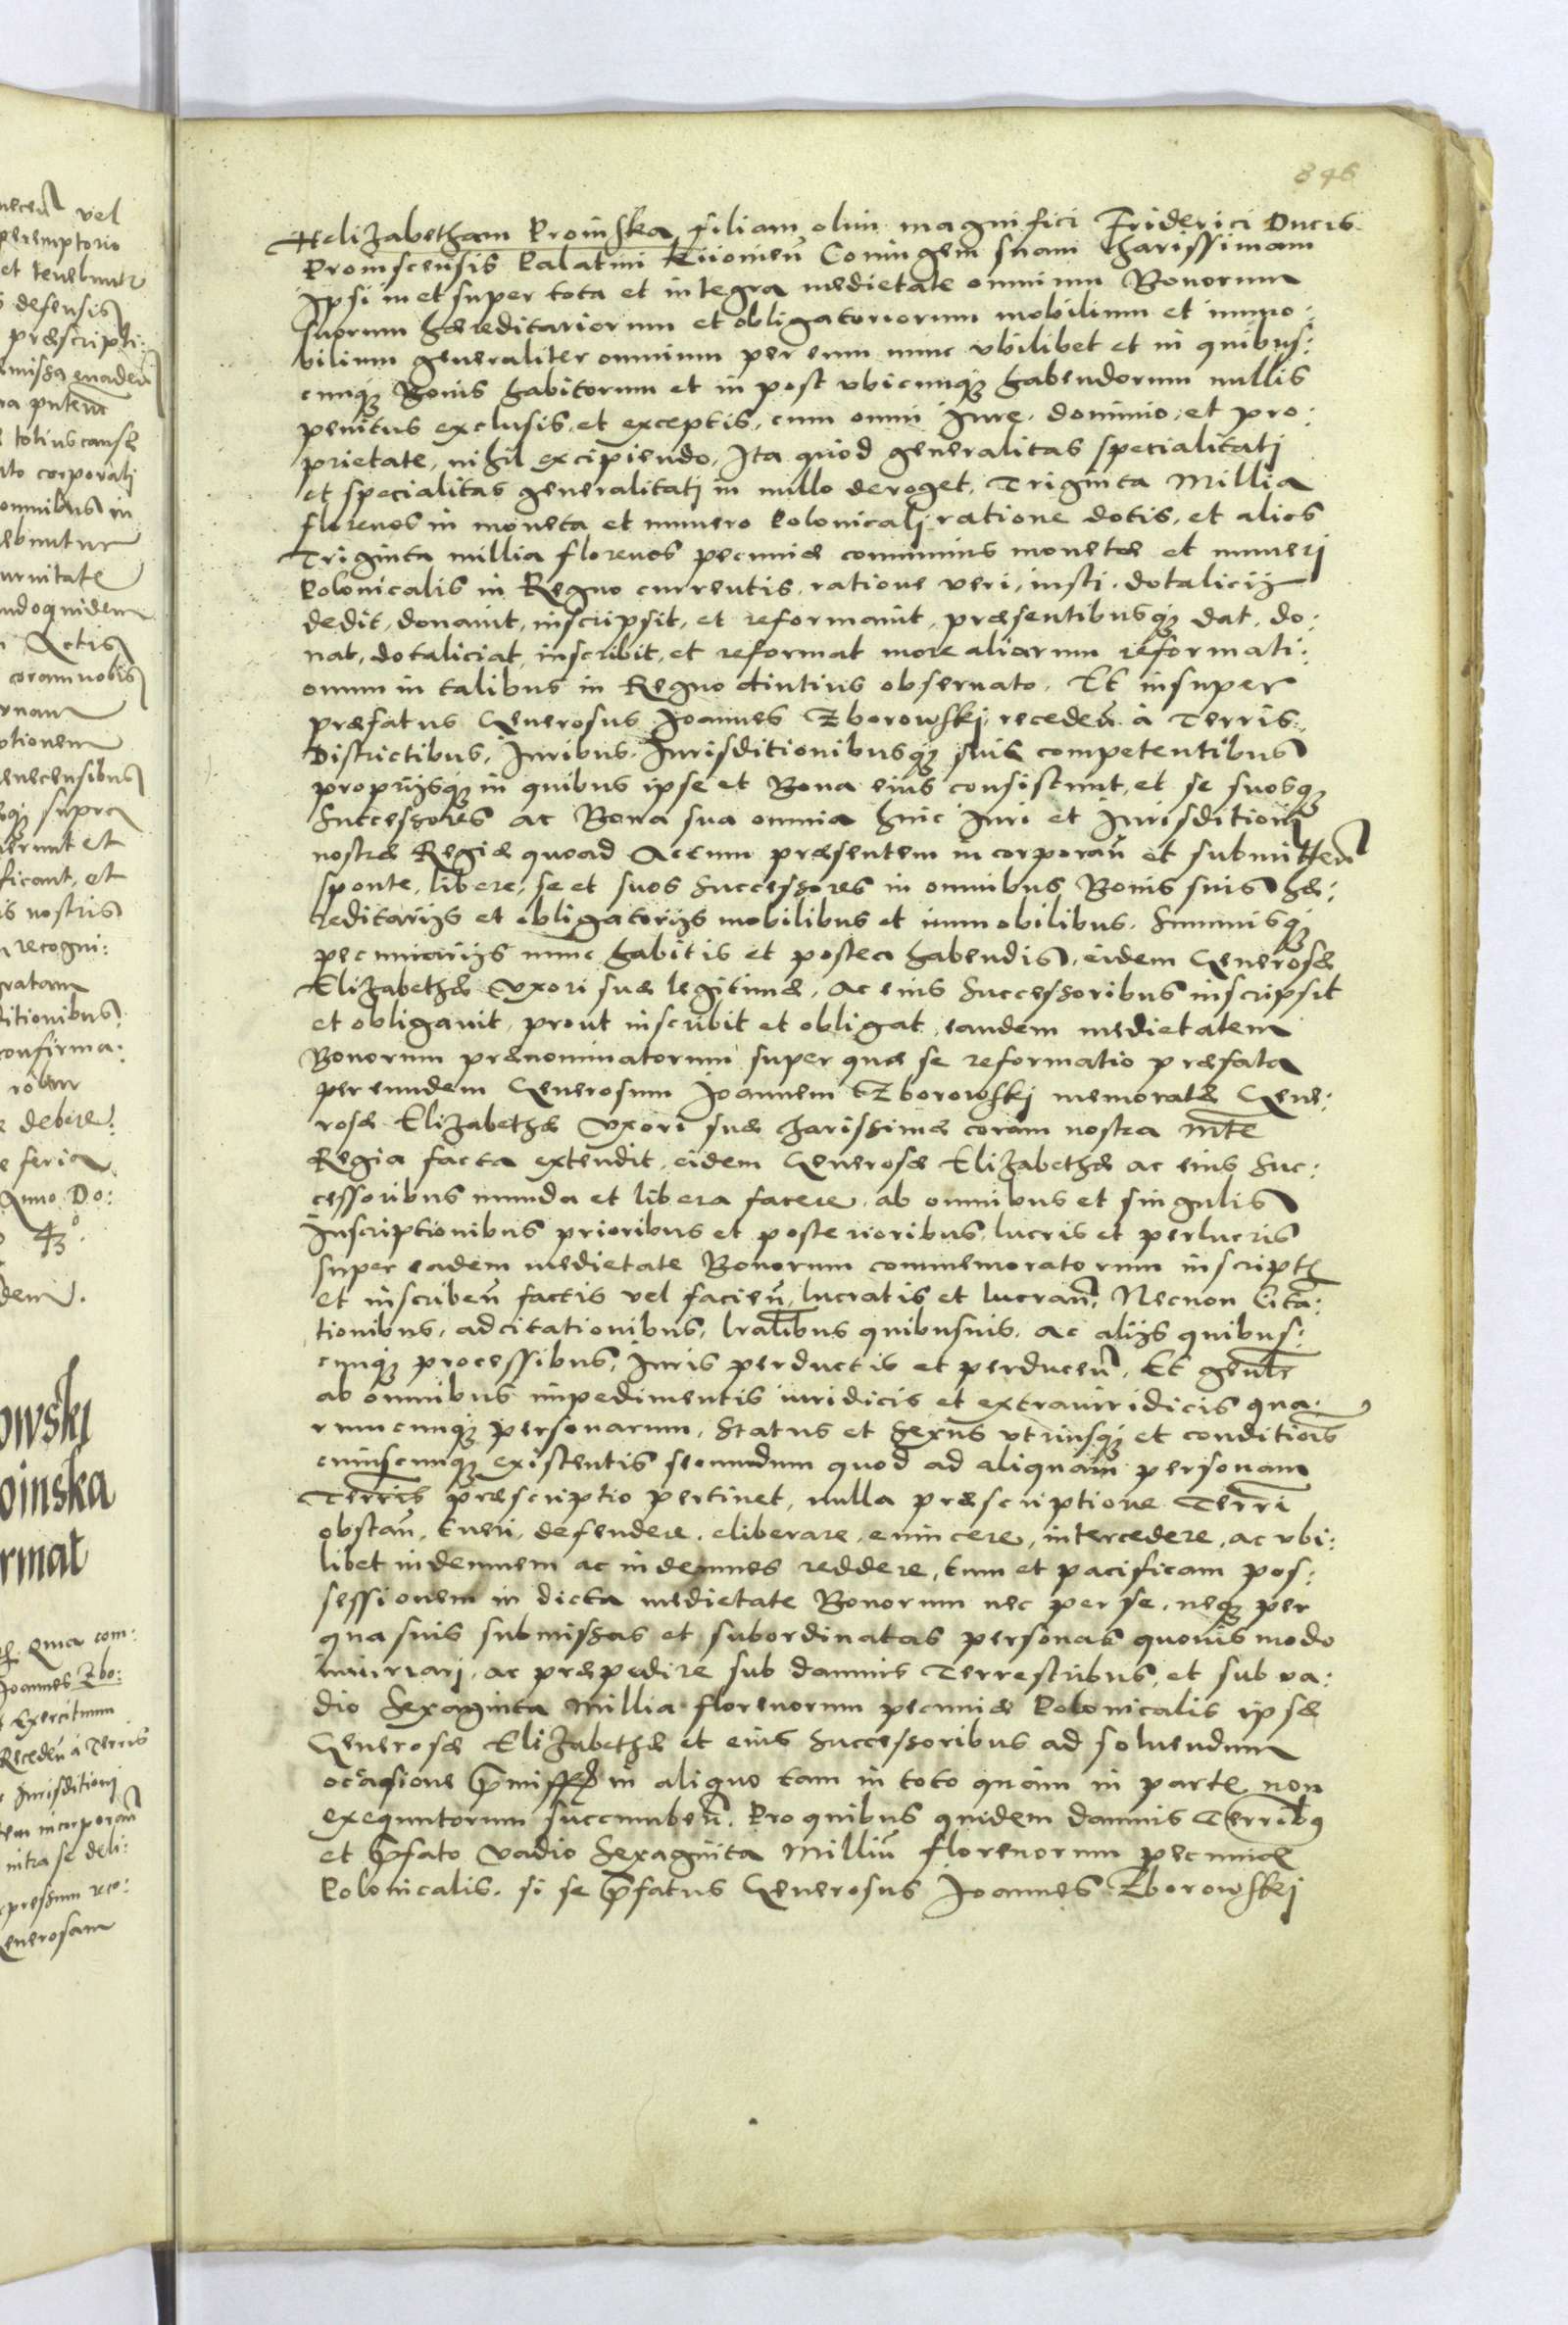 846
Helizabetham Proinska, filiam olim magnifici Friderici Ducis
Proinscensis Palatini Kiiouieñ Coniugem suam charissimam
Ipsi in et super tota et integra medietate omnium Bonorum
suorum hæreditariorum et obligatoriorum mobilium et immo:
bilium generaliter omnium per eum nunc vbilibet et in quibus:
cunq; Bonis habitorum et in post vbicunq; habendorum nullis
penitus exclusis, et exceptis, cum omni Iure, dominio, et pro:
prietate, nihil excipiendo, Ita quod generalitas specialitati
et specialitas generalitatj in nullo deroget, Triginta Millia
florenos in moneta et numero Polonicalj ratione dotis, et alios
Triginta millia florenos pecuniæ communis monetæ et numerj
Polonicalis in Regno currentis, ratione veri, iusti, dotalicij
dedit, donauit, inscripsit, et reformauit, præsentibusq; dat, do:
nat, dotaliciat, inscribit, et reformat more aliarum reformati:
onum in talibus in Regno diutius obseruato. Et insuper
præfatus Generosus Joannes Zborowskj recedeñ à Terris,
Districtibus, Iuribus, Iurisditionibusq; suis competentibus
proprijsq; in quibus ipse et Bona eius consistunt, et se suosq;
Successores ac Bona sua omnia huic Iuri et Iurisditioni
nostræ Regiæ quoad Actum præsentem incorporañ et submitteñ
sponte, libere, se et suos Successores in omnibus Bonis suis hæ:
reditarijs et obligatorijs mobilibus et immobilibus, Summisq;
pecuniarijs nunc habitis et postea habendis, eidem Generosæ
Elizabethæ Vxori suæ legitimæ, ac eius Successoribus inscripsit
et obligauit, prout inscribit et obligat, eandem medietatem
Bonorum prænominatorum super quæ se reformatio præfata
per eundem Generosum Joannem Zborowskj memoratæ Gene:
rosæ Elizabethæ Vxori suæ charissimæ coram nostra Mte
Regia facta extendit, eidem Generosæ Elizabethæ ac eius Suc:
cessoribus munda et libera facere, ab omnibus et singulis
Inscriptionibus prioribus et posterioribus, lucris et perlucris
super eadem medietate Bonorum commemoratorum inscript
et inscribeñ factis vel facieñ, lucratis et lucrañ, Necnon Cita:
tionibus, adcitationibus, lralibus quibusuis, ac alijs quibus:
cunq; processibus, Iuris perductis et perduceñ, Et genlr
ab omnibus impedimentis iuridicis et extrauiridicis qua:
rumcunq; personarum, Status et Sexus vtriusq; et conditiois
cuiuscunq; existentis secundum quod ad aliquam personam
Terris præscriptio pertinet, nulla præscriptione Terri
obstañ, tueri, defendere, eliberare, euincere, intercedere, ac vbi:
libet indemnem ac indemnes reddere, tum et pacificam pos:
sessionem in dicta medietate Bonorum nec per se, neq; per
quasuis submissas et subordinatas personas quouis modo
iniuriarj, ac præpedire sub damnis Terrestribus, et sub va:
dio Sexaginta Millia florenorum pecuniæ Polonicalis ipsæ
Generosæ Elizabethæ et eius Successoribus ad soluendum
occasione pmissor in aliquo tam in toto quàm in parte non
exequutorum succumbeñ. Pro quibus quidem damnis Terribus
et pfato Vadio Sexaginta Milliũ florenorum pecuniæ
Polonicalis, si se pfatus Generosus Joannes Zborowskj